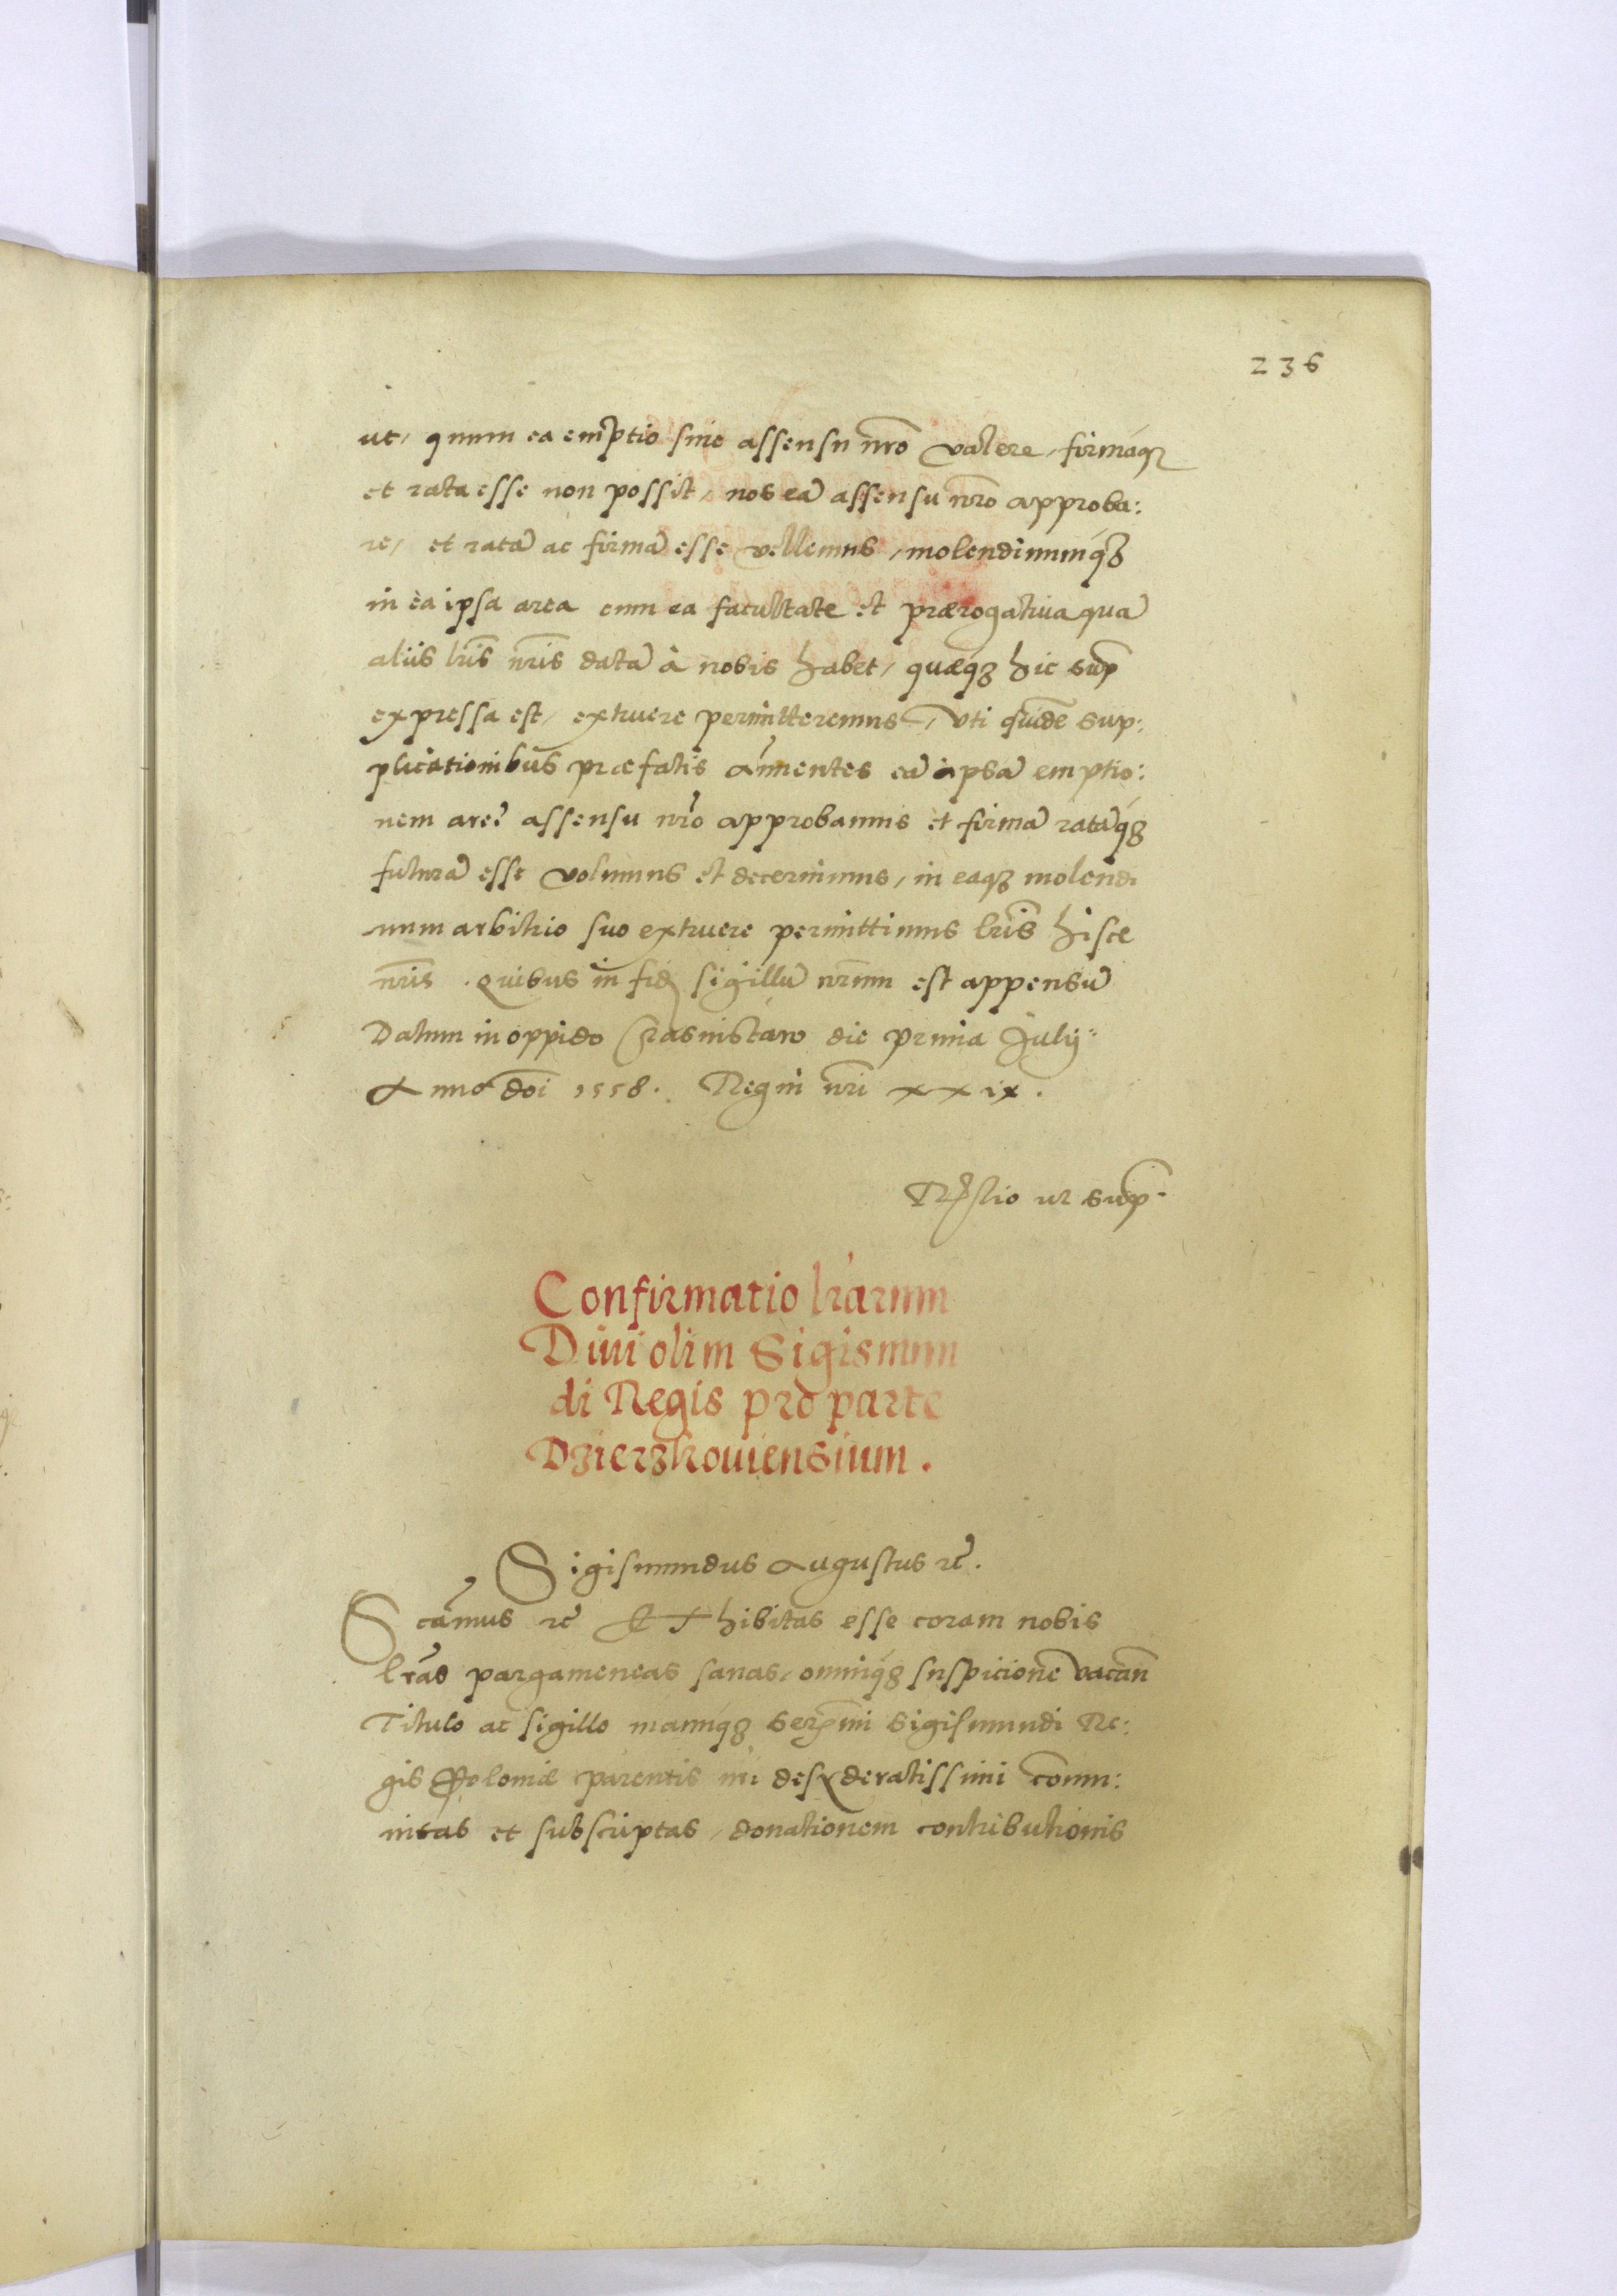 236
ut, quum ea emptio sine assensu nr̃o valere, firmáqȝ
et rata esse non possit, nos eã assensu nr̃o approba:
re, et ratã ac firmã esse vellemus, molendinumq́ȝ
in ea ipsa area cum ea facultate et prærogatiua quã
aliis lr̃is nr̃is datã à nobis habet, quæqȝ hic sup̃
expressa est, extruere permitteremus, Vti quidẽ sup:
plicationibus præfatis ãnuentes eã ipsã emptio:
nem areę assensu nr̃o approbamus et firmã ratãq́ȝ
futurã esse volumus et decernimus, in eaqȝ molendi
num arbitrio suo extruere permittimus lr̃is hisce
nr̃is. Quibus in fidẽ sigillũ nr̃um est appensũ
Datum in oppido Crasnistaw die prima Julij
Anno dñi 1558. Regni nr̃i xxix.
Rl̃atio ut sup̃.
Confirmatio lr̃arum
Diui olim Sigismun
di Regis pro parte
Dzierzkouiensium.
Sigismundus Augustus rc̃.
S cãmus rc̃ Exhibitas esse coram nobis
lr̃as pargameneas sanas, omniq́ȝ suspicione vacan̄
Titulo ac sigillo manúqȝ Serẽmi Sigismundi Re:
gis Poloniæ parentis nr̃i desyderatissimi commu:
nitas et subscriptas, donationem contributionis